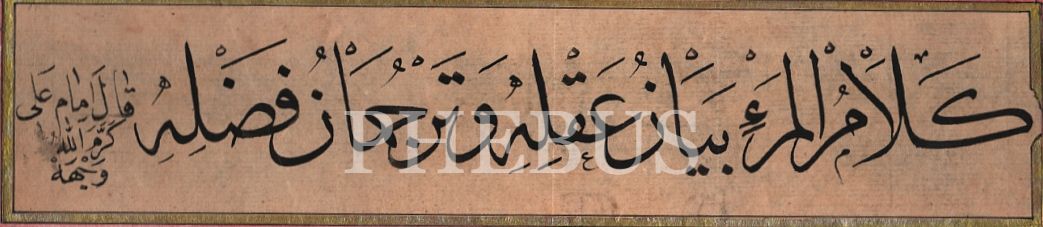 كَلَامُ الْمَرْءِ بَيَانُ عَقْلِهِ وَتَرْجُمَانُ فَضْلِهِ
قال امام على
كرم الله
وجهه
PHEBUS